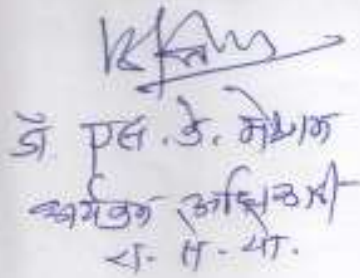 डॉ. एस. के. मेश्राम
कार्यक्रम अधिकारी
रा. से. यो.